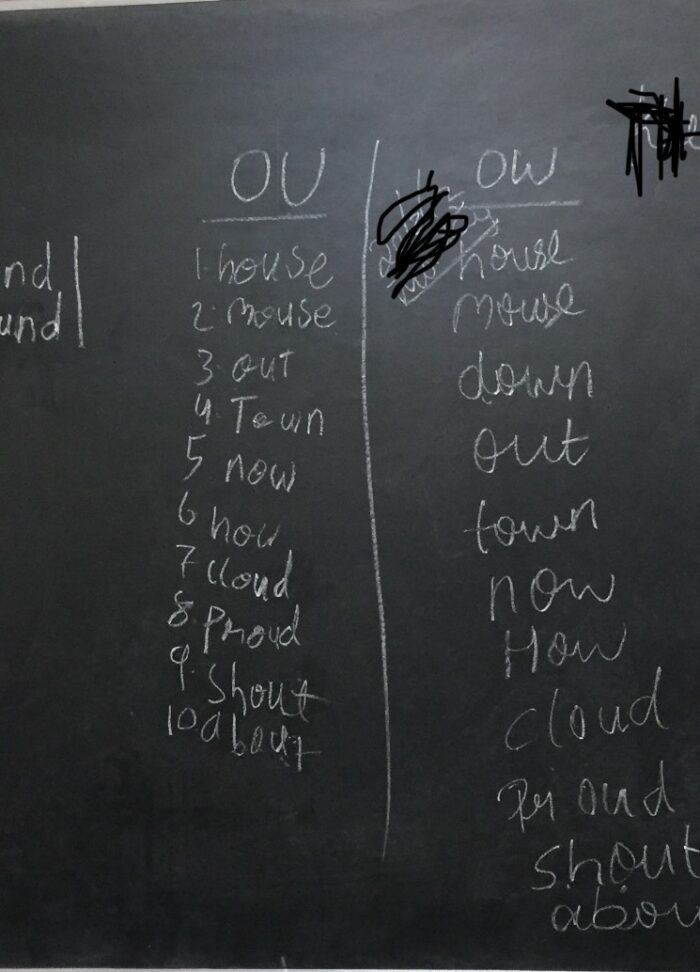 OU
1. house
2. mouse
3 out
4 Town
5 now
6 how
7 cloud
8 Proud
9. Shout
10 about
OW
house
mouse
down
out
town
now
How
cloud
Proud
shout
abou
nd
und